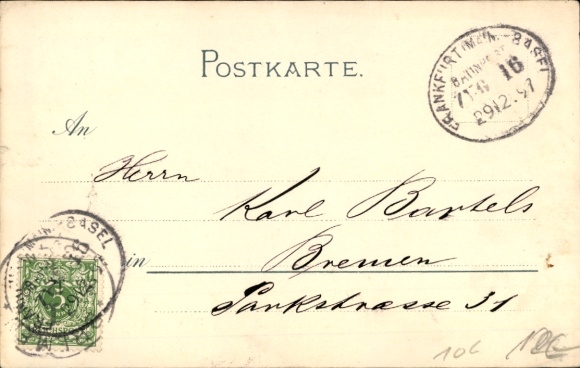 POSTKARTE.
FRANKFURT (MAIN) - BASEL
BAHNPOST
ZUG 16
29 12. 97
An
Herrn
Karl Bartels
in Bremen
Parkstrasse 31
BASEL
5
106